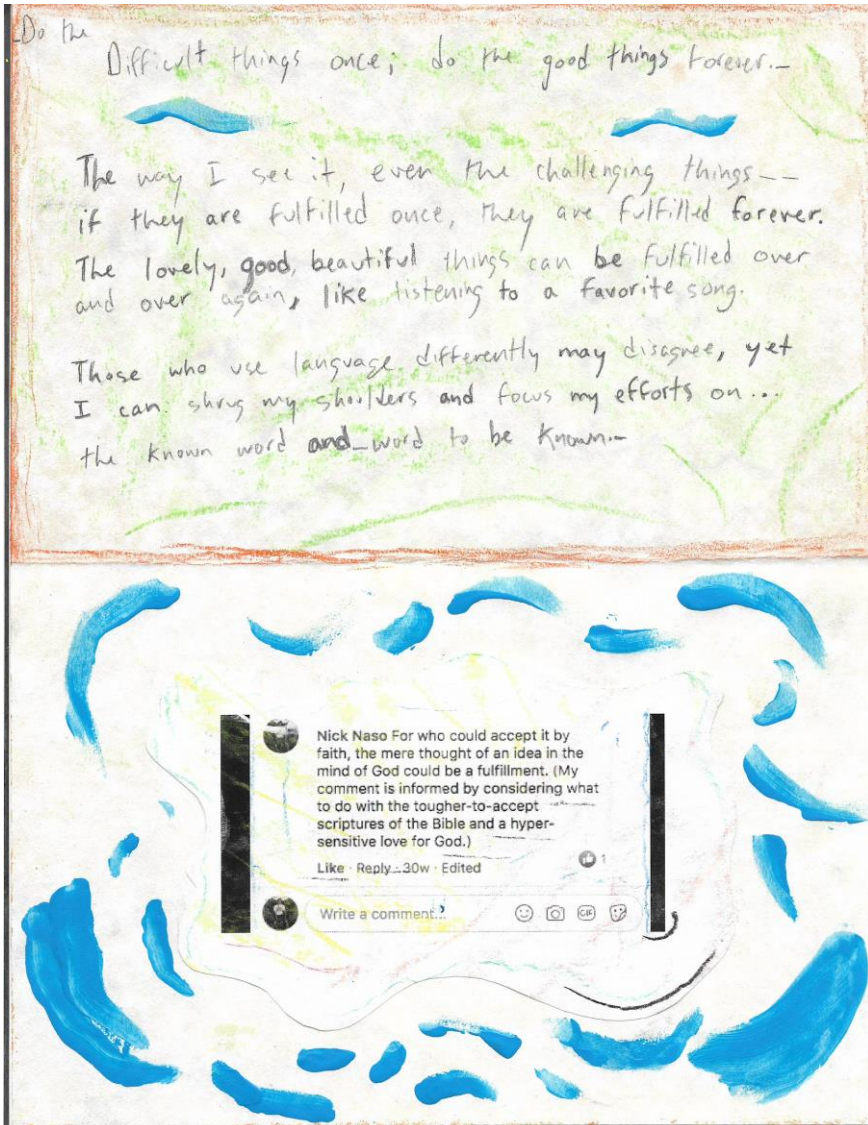 Do the
Difficult things once; do the good things forever.–
The way I see it, even the challenging things––
if they are fulfilled once, they are fulfilled forever.
The lovely, good, beautiful things can be fulfilled over
and over again, like listening to a favorite song.
Those who use language differently may disagree, yet
I can shrug my shoulders and focus my efforts on...
the known word and_word to be known.–
Nick Naso For who could accept it by
faith, the mere thought of an idea in the
mind of God could be a fulfillment. (My
comment is informed by considering what
to do with the tougher-to-accept
scriptures of the Bible and a hyper-
sensitive love for God.)
Like · Reply · 30w · Edited
1
Write a comment...
GIF